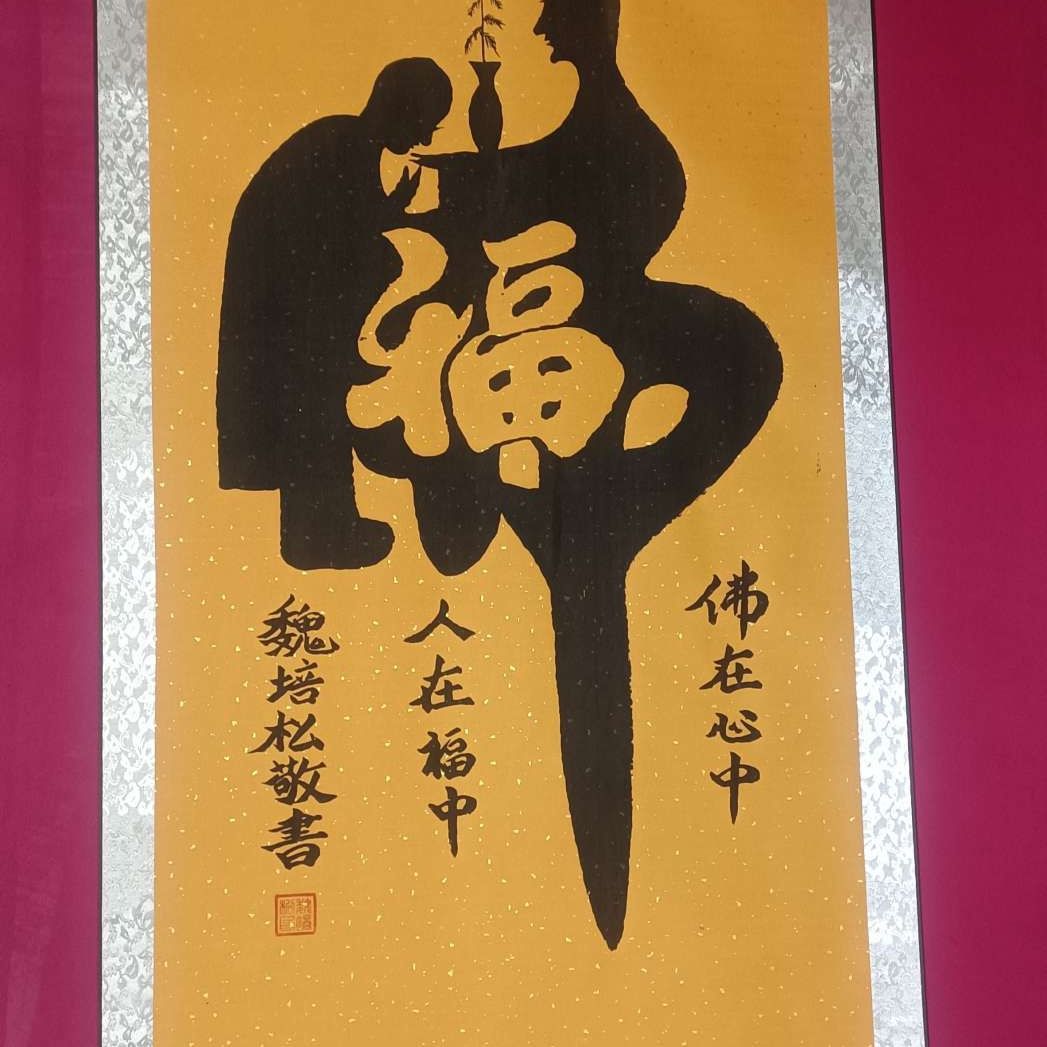 佛
福
佛在心中
人在福中
魏培松敬書